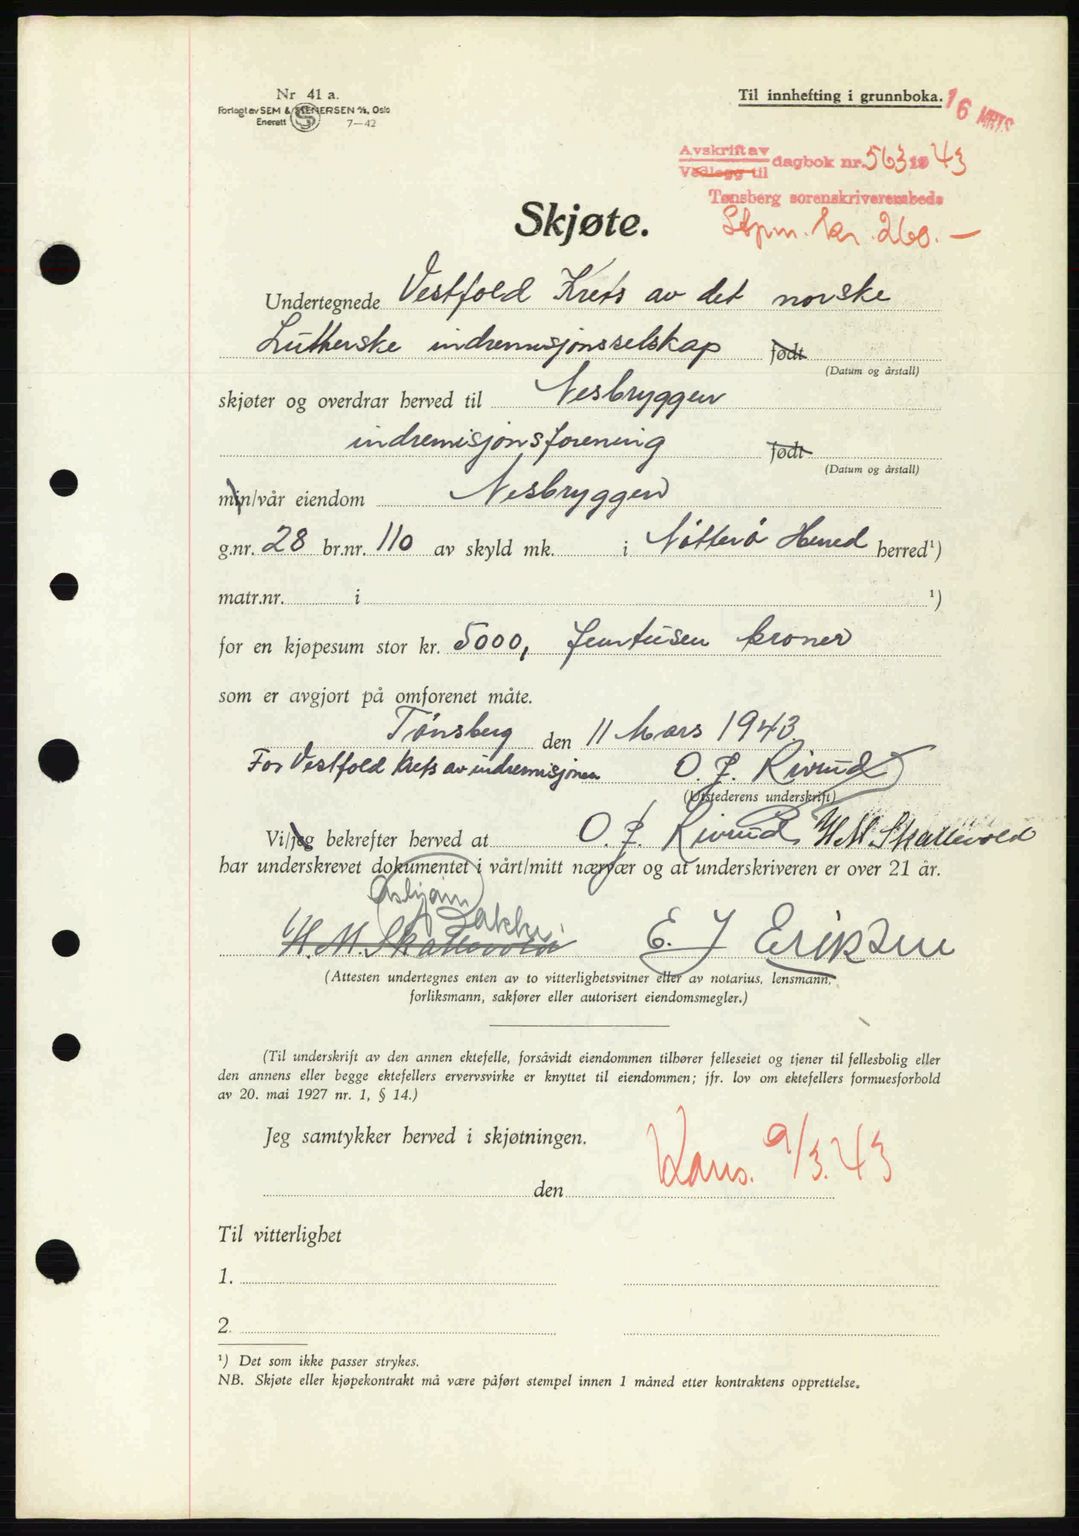 Nr 41 a.
Forlagt av SEM & STENERSEN A/S, Oslo
Enerett 7-42
Til innhefting i grunnboka.
16 MRTS
Avskrift av
Vedlegg til
dagbok nr. 563 1943
Tønsberg sorenskriverembede
Stpm. kr. 260.-
Skjøte.
Undertegnede Vestfold Krets av det norske
Lutherske indremisjonsselskap født
(Datum og årstall)
skjøter og overdrar herved til Nesbryggen
indremisjonsforening født
(Datum og årstall)
min/vår eiendom Nesbryggen
g.nr. 28 br.nr. 110 av skyld mk. i Nøtterø Herred herred¹)
matr.nr. i ¹)
for en kjøpesum stor kr. 5000, femtusen kroner
som er avgjort på omforenet måte.
Tønsberg den 11 Mars 1943.
For Vestfold krets av indremisjonen O. J. Rivrud
(Utstederens underskrift)
Vi/jeg bekrefter herved at O. J. Rivrud, H. M. Skallevold
har underskrevet dokumentet i vårt/mitt nærvær og at underskriveren er over 21 år.
Asbjørn Bakke.
H. M. Skallevold E. J Eriksen
(Attesten undertegnes enten av to vitterlighetsvitner eller av notarius, lensmann,
forliksmann, sakfører eller autorisert eiendomsmegler.)
(Til underskrift av den annen ektefelle, forsåvidt eiendommen tilhører felleseiet og tjener til fellesbolig eller
den annens eller begge ektefellers ervervsvirke er knyttet til eiendommen; jfr. lov om ektefellers formuesforhold
av 20. mai 1927 nr. 1, § 14.)
Jeg samtykker herved i skjøtningen.
Kons. 9/3.43
den
Til vitterlighet
1.
2.
¹) Det som ikke passer strykes.
NB. Skjøte eller kjøpekontrakt må være påført stempel innen 1 måned etter kontraktens opprettelse.